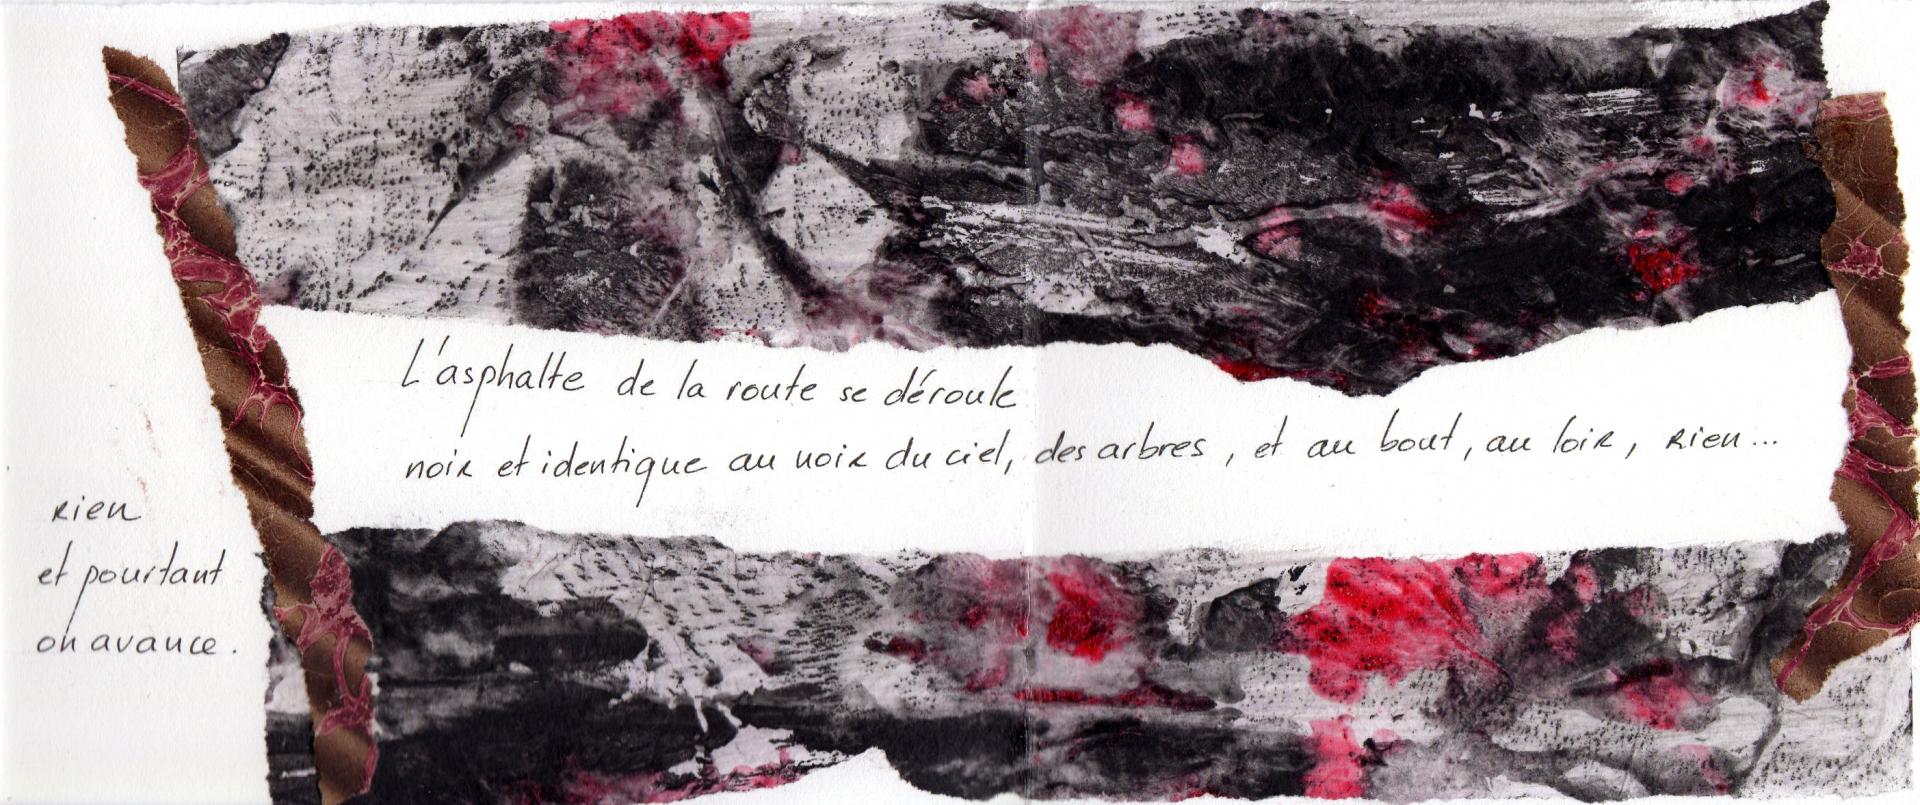 L'asphalte de la route se déroule
noir et identique au noir du ciel, des arbres, et au bout, au loin, rien...
rien
et pourtant
on avance.